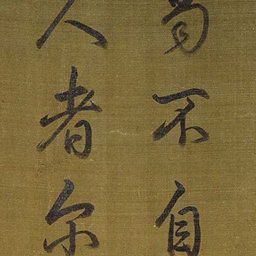 不自
人者尔